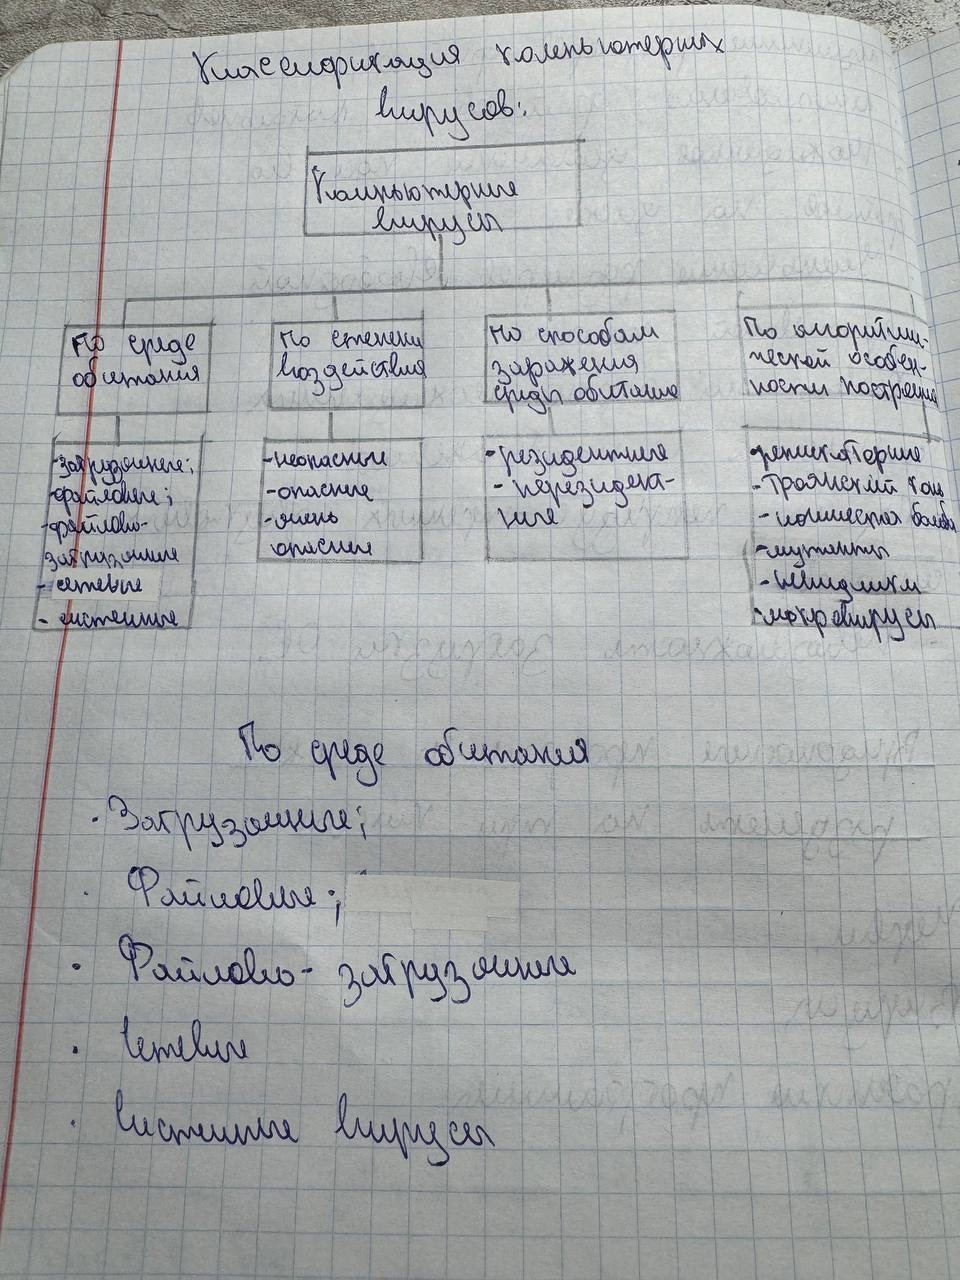 Классификация компьютерных
вирусов:
Компьютерные
вирусы
По среде
обитания
По степени
воздействия
По способам
заражения
среды обитания
По алгоритми-
ческой особен-
ности построения
-загрузочные;
-файловые;
-файлово-
загрузочные
- сетевые
- системные
-неопасные
-опасные
-очень
опасные
-резидентные
- нерезидент-
ные
-репликаторные
-троянский конь
-логическая бомба
-мутанты
-невидимки
-макровирусы
По среде обитания
· Загрузочные;
· Файловые;
· Файлово- загрузочные
· Сетевые
· Системные вирусы